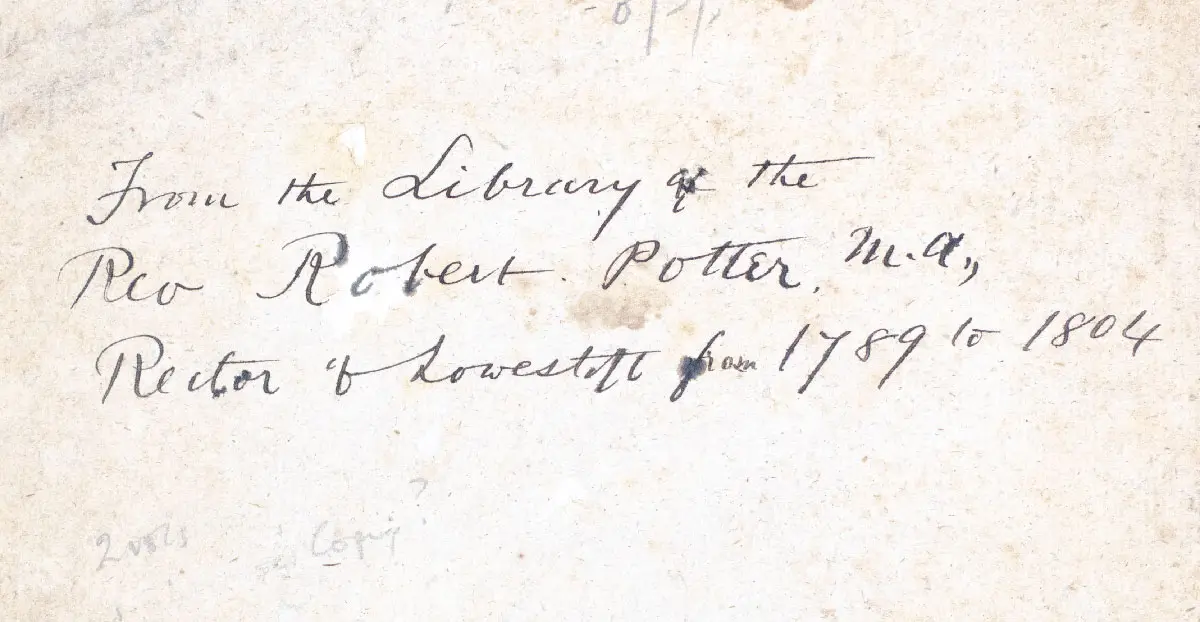 From the Library of the
Rev Robert Potter, M.A.,
Rector of Lowestoft from 1789 to 1804
2 vols